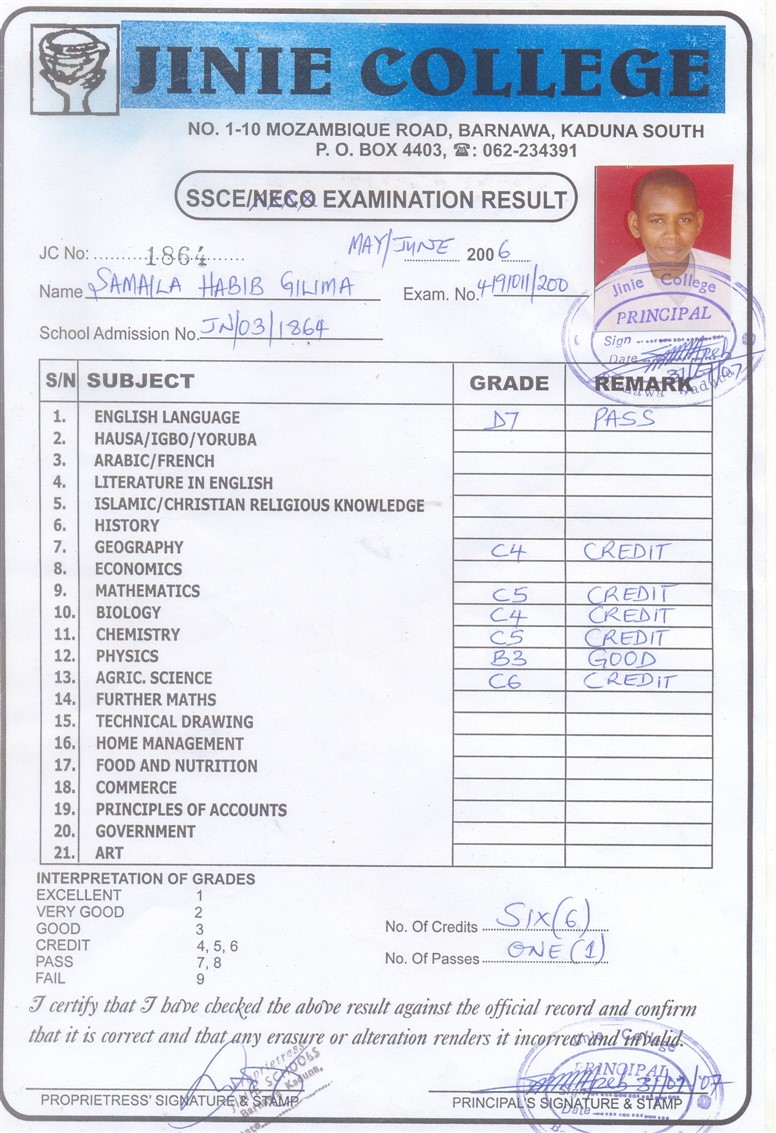 JINIE COLLEGE
NO. 1-10 MOZAMBIQUE ROAD, BARNAWA, KADUNA SOUTH
P. O. BOX 4403, ☎: 062-234391
SSCE/NECO EXAMINATION RESULT
JC No: 1864 MAY/JUNE 2006
Name SAMAILA HABIB GILIMA Exam. No. 4191011/200
School Admission No. JN/03/1864
Jinie College
PRINCIPAL
Sign
Date 31/07/07
S/N SUBJECT GRADE REMARK
1. ENGLISH LANGUAGE D7 PASS
2. HAUSA/IGBO/YORUBA
3. ARABIC/FRENCH
4. LITERATURE IN ENGLISH
5. ISLAMIC/CHRISTIAN RELIGIOUS KNOWLEDGE
6. HISTORY
7. GEOGRAPHY C4 CREDIT
8. ECONOMICS
9. MATHEMATICS C5 CREDIT
10. BIOLOGY C4 CREDIT
11. CHEMISTRY C5 CREDIT
12. PHYSICS B3 GOOD
13. AGRIC. SCIENCE C6 CREDIT
14. FURTHER MATHS
15. TECHNICAL DRAWING
16. HOME MANAGEMENT
17. FOOD AND NUTRITION
18. COMMERCE
19. PRINCIPLES OF ACCOUNTS
20. GOVERNMENT
21. ART
INTERPRETATION OF GRADES
EXCELLENT 1
VERY GOOD 2
GOOD 3
CREDIT 4, 5, 6
PASS 7, 8
FAIL 9
No. Of Credits SIX(6)
No. Of Passes ONE(1)
I certify that I have checked the above result against the official record and confirm
that it is correct and that any erasure or alteration renders it incorrect and invalid.
Jinie College
PRINCIPAL
31/07/'07
Date
Proprietress
SCHOOLS
Kaduna.
PROPRIETRESS' SIGNATURE & STAMP PRINCIPAL'S SIGNATURE & STAMP